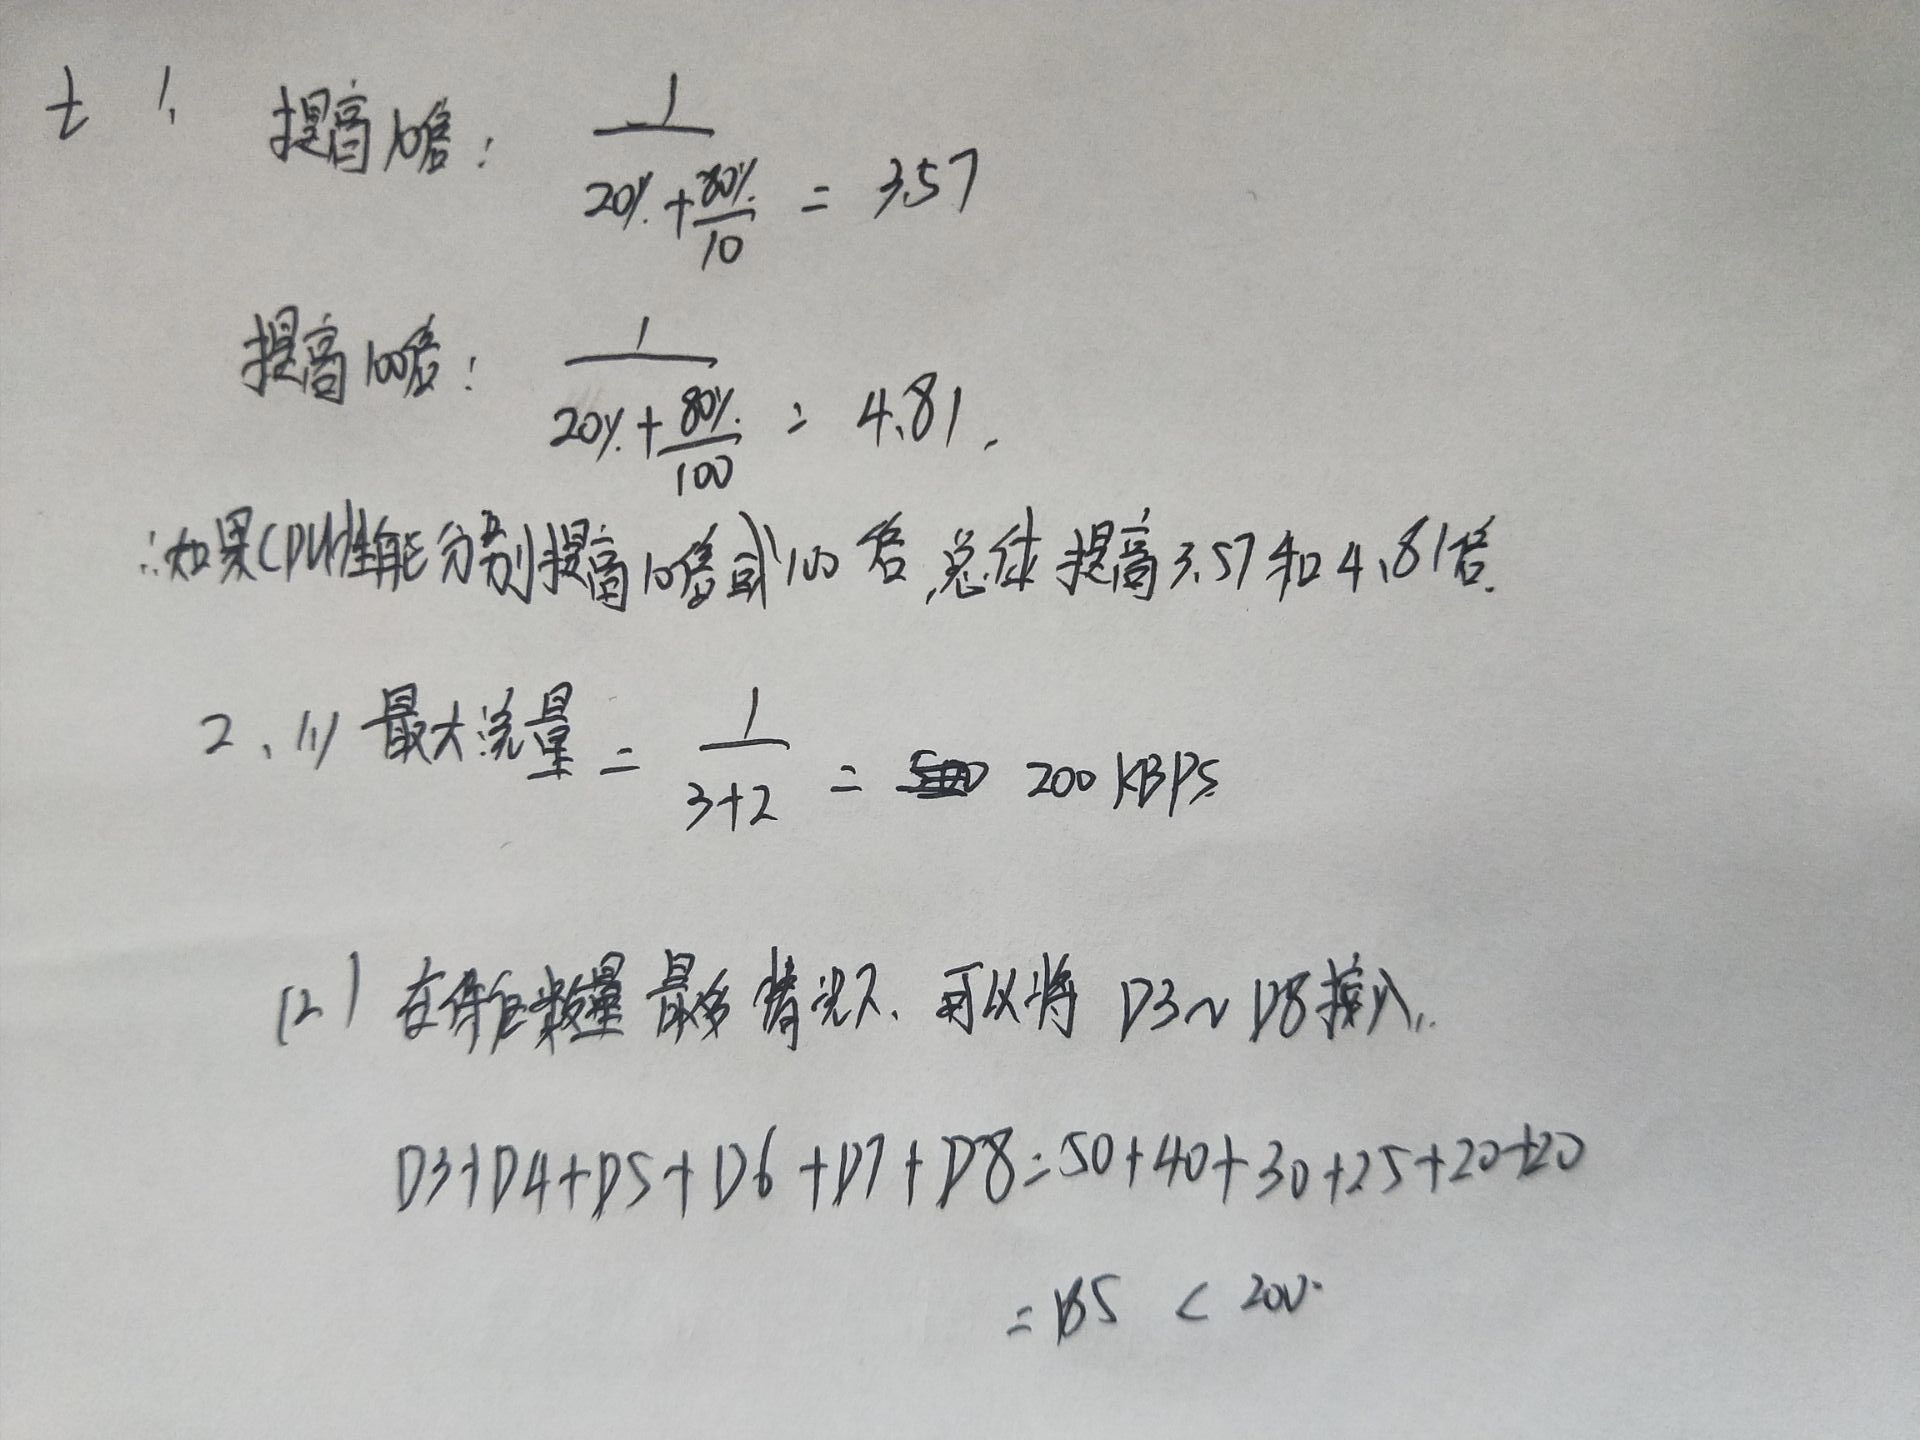 七 1、 提高10倍: 1/(20%+80%/10) = 3.57
提高100倍: 1/(20%+80%/100) = 4.81.
∴如果CPU性能分别提高10倍或100倍,总体提高3.57和4.81倍.
2、(1) 最大流量 = 1/(3+2) = 200KBPS
(2) 在保证数量最多情况下、可以将 D3~D8接入.
D3+D4+D5+D6+D7+D8=50+40+30+25+20+20
=185 < 200.